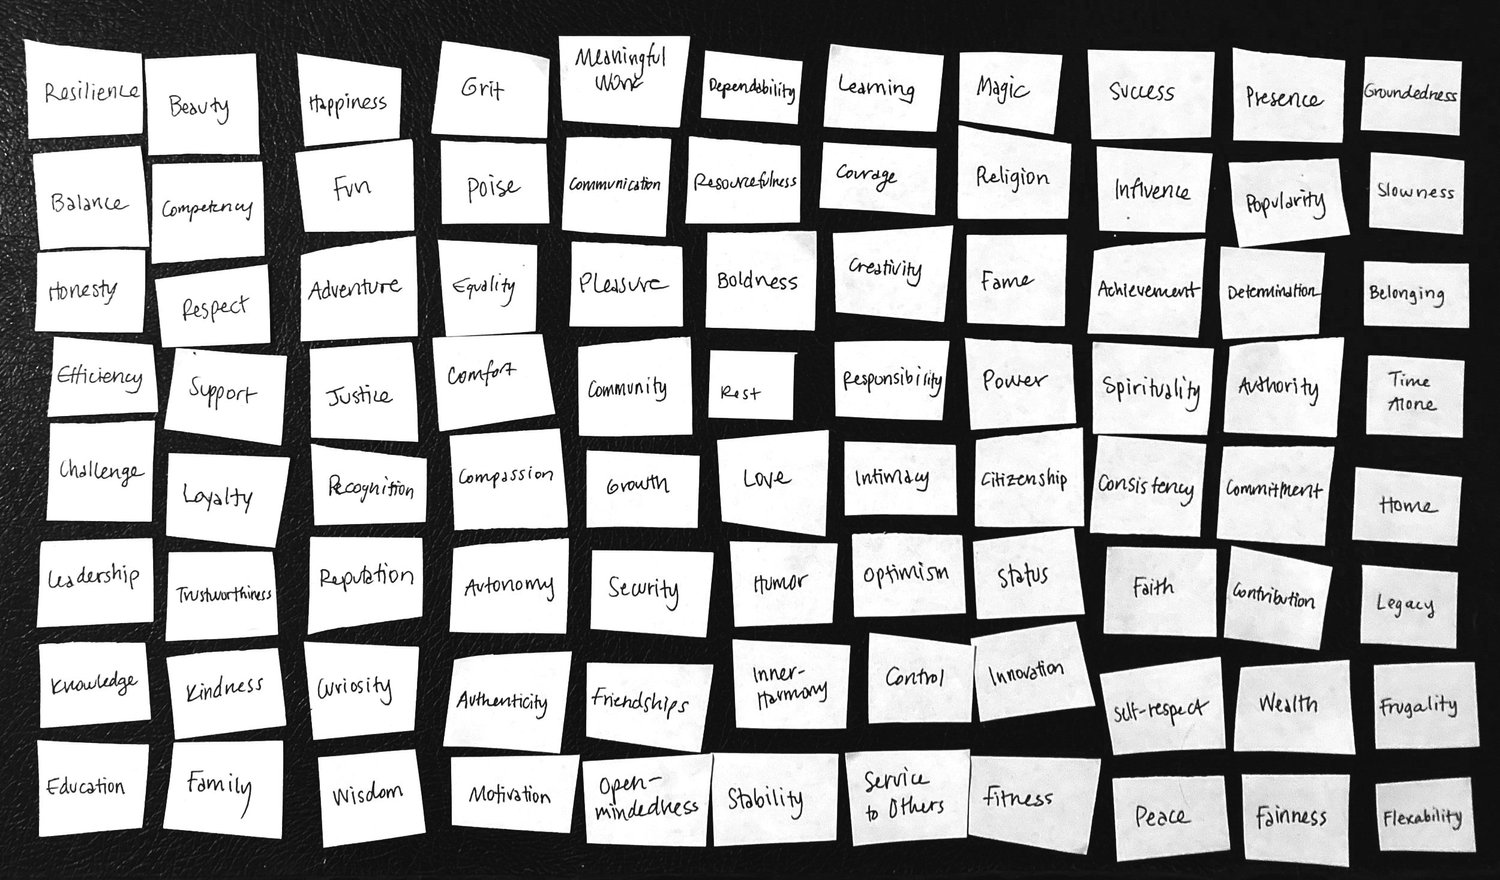 Resilience
Beauty
Happiness
Grit
Meaningful
Work
Dependability
Learning
Magic
Success
Presence
Groundedness
Balance
Competency
Fun
Poise
Communication
Resourcefulness
Courage
Religion
Influence
Popularity
Slowness
Honesty
Respect
Adventure
Equality
Pleasure
Boldness
Creativity
Fame
Achievement
Determination
Belonging
Efficiency
Support
Justice
Comfort
Community
Rest
Responsibility
Power
Spirituality
Authority
Time
Alone
Challenge
Loyalty
Recognition
Compassion
Growth
Love
Intimacy
Citizenship
Consistency
Commitment
Home
Leadership
Trustworthiness
Reputation
Autonomy
Security
Humor
Optimism
Status
Faith
Contribution
Legacy
Knowledge
Kindness
Curiosity
Authenticity
Friendships
Inner-
Harmony
Control
Innovation
Self-respect
Wealth
Frugality
Education
Family
Wisdom
Motivation
Open-
mindedness
Stability
Service
to Others
Fitness
Peace
Fairness
Flexability